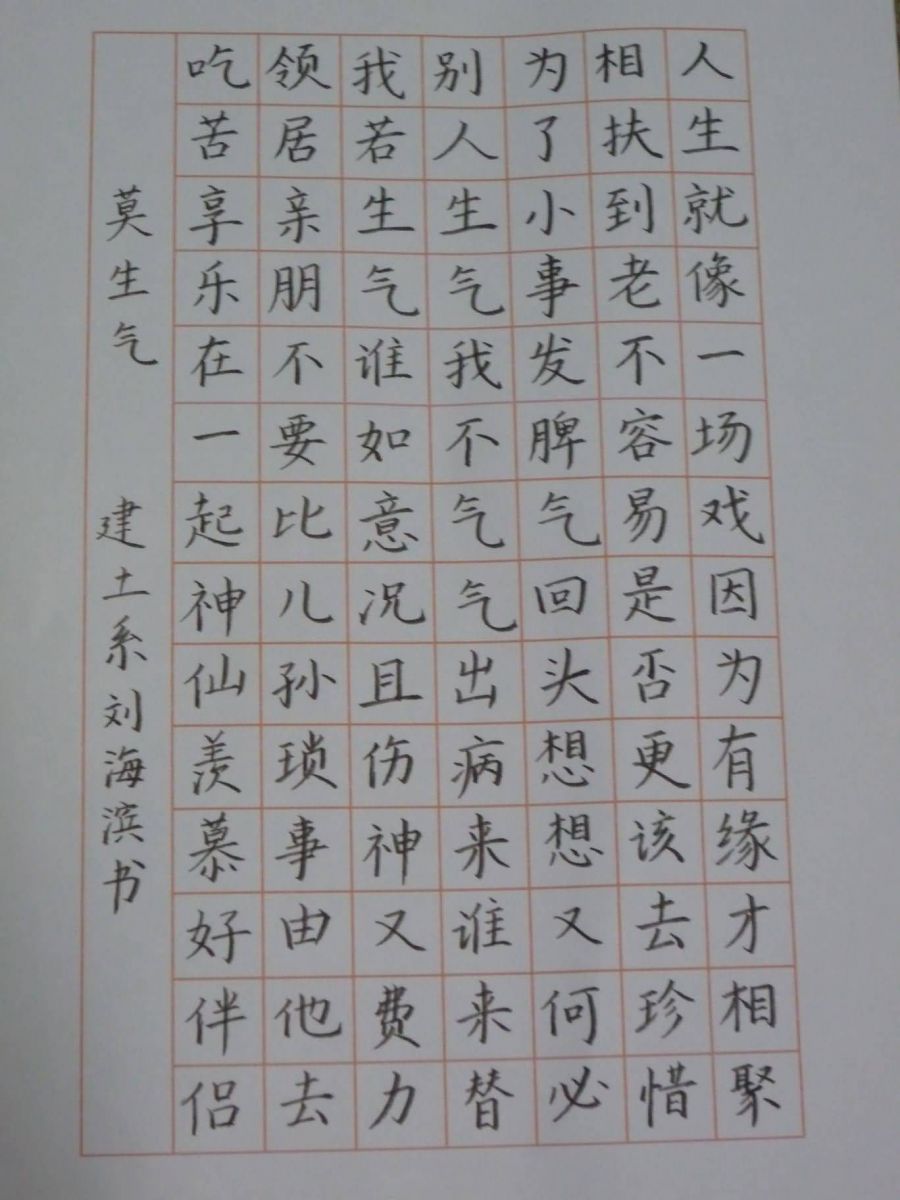 人生就像一场戏因为有缘才相聚
相扶到老不容易是否更该去珍惜
为了小事发脾气回头想想又何必
别人生气我不气气出病来谁来替
我若生气谁如意况且伤神又费力
领居亲朋不要比儿孙琐事由他去
吃苦享乐在一起神仙羡慕好伴侣
莫生气 建土系刘海滨书